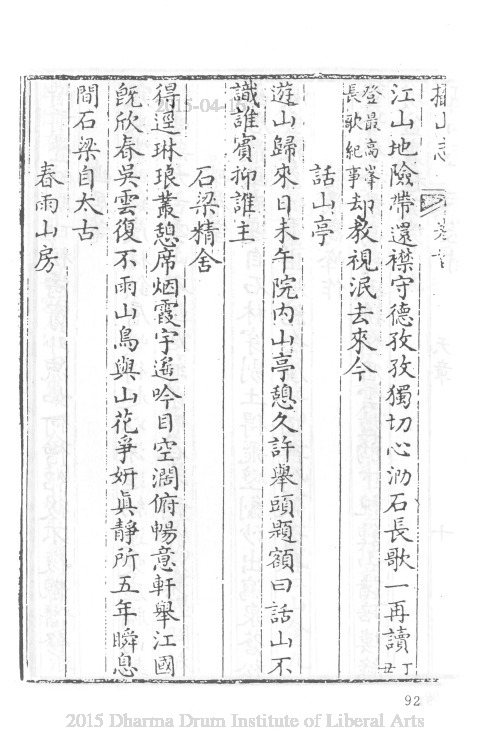 攝山志
江山地險帶還襟守德孜孜獨切心泐石長歌一再讀丁丑
登最高峯長歌紀事却教視泯去來今
話山亭
遊山歸來日未午院內山亭憩久許舉頭題額曰話山不
識誰賓抑誰主
石梁精舍
得逕琳琅叢憩席烟霞宇遙吟目空濶俯暢意軒舉江國
旣欣春吳雲復不雨山鳥與山花爭妍眞靜所五年瞬息
間石梁自太古
春雨山房
92
2015-04-1
2015 Dharma Drum Institute of Liberal Arts